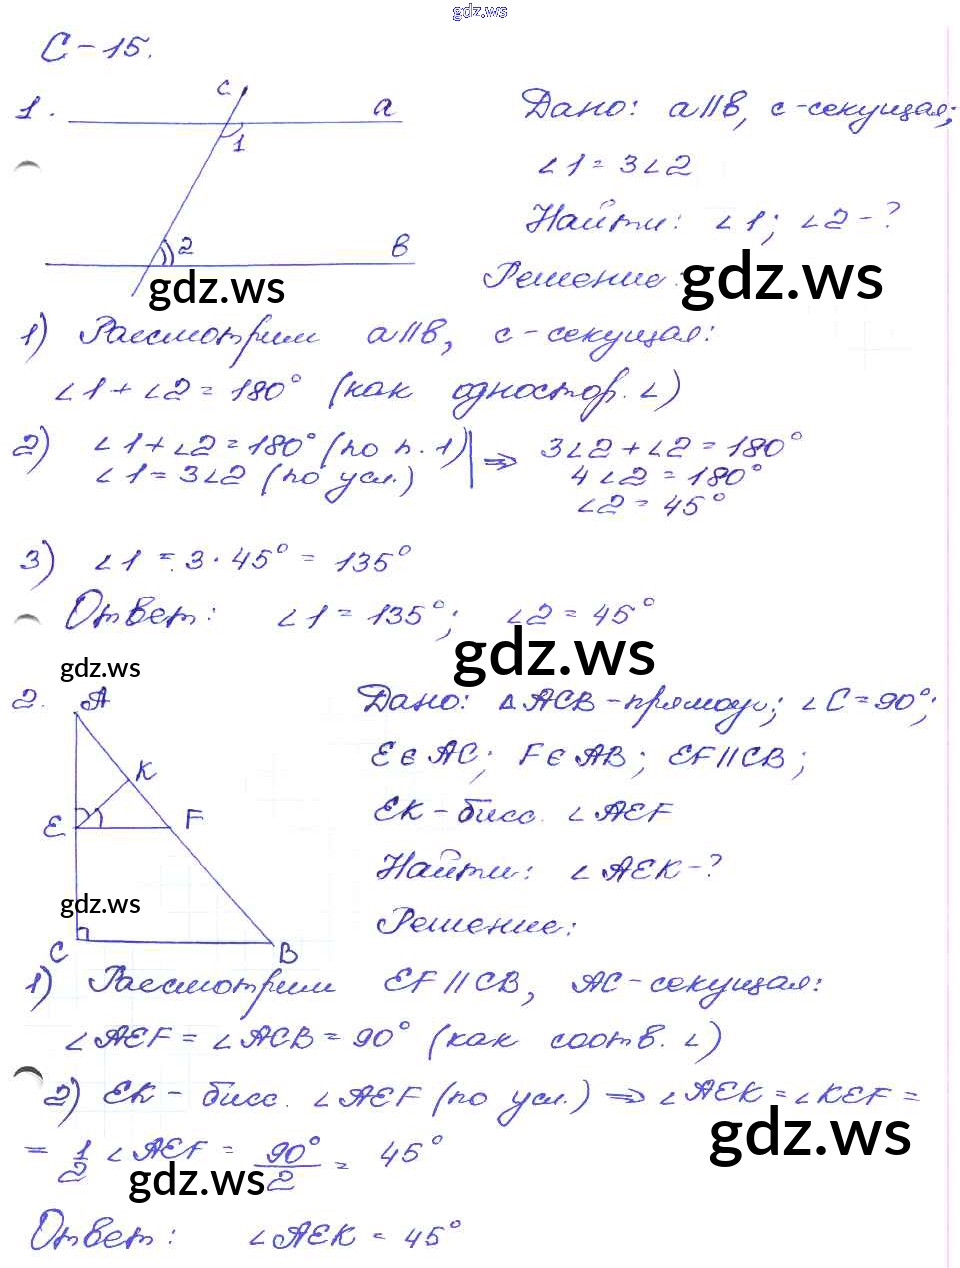 gdz.ws
С-15.
1.
c
a
1
2
b
Дано: a||b, c-секущая;
∠1 = 3∠2
Найти: ∠1; ∠2-?
Решение:
gdz.ws
gdz.ws
1) Рассмотрим a||b, c-секущая:
∠1 + ∠2 = 180° (как одностор. ∠)
2) ∠1 + ∠2 = 180° (по п. 1) | => 3∠2 + ∠2 = 180°
∠1 = 3∠2 (по усл.) 4∠2 = 180°
∠2 = 45°
3) ∠1 = 3 · 45° = 135°
Ответ: ∠1 = 135°; ∠2 = 45°
gdz.ws
gdz.ws
2.
A
K
E
F
C
B
gdz.ws
Дано: △ACB-прямоуг; ∠C = 90°;
E∈AC; F∈AB; EF||CB;
EK-бисс. ∠AEF
Найти: ∠AEK-?
Решение:
1) Рассмотрим EF||CB, AC-секущая:
∠AEF = ∠ACB = 90° (как соотв. ∠)
2) EK- бисс. ∠AEF (по усл.) => ∠AEK = ∠KEF =
= 1/2 ∠AEF = 90°/2 = 45°
gdz.ws
gdz.ws
Ответ: ∠AEK = 45°